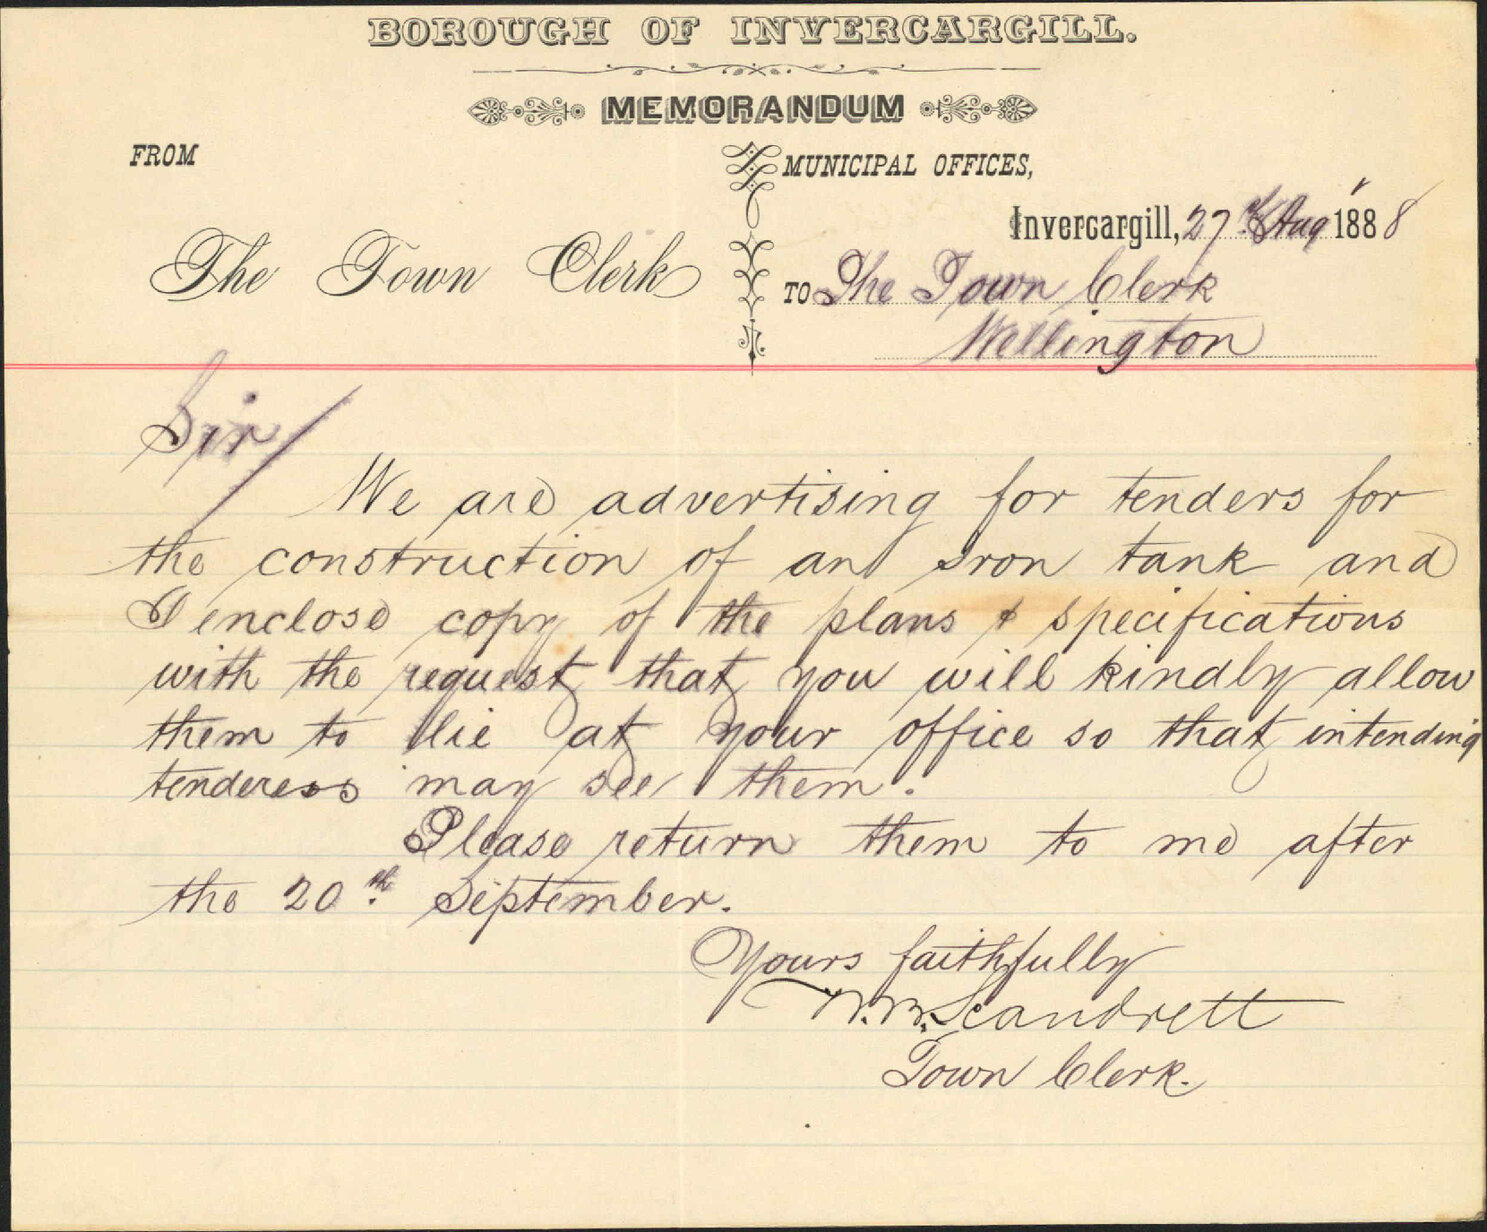 BOROUGH OF INVERCARGILL.
MEMORANDUM
FROM
The Town Clerk
MUNICIPAL OFFICES,
Invercargill, 27th Aug 1888
TO The Town Clerk
Wellington
Sir/
We are advertising for tenders for
the construction of an iron tank and
I enclose copy of the plans & specifications
with the request that you will kindly allow
them to lie at your office so that intending
tenderess may see them.
Please return them to me after
the 20th September.
Yours faithfully
W.B. Scandrett
Town Clerk.